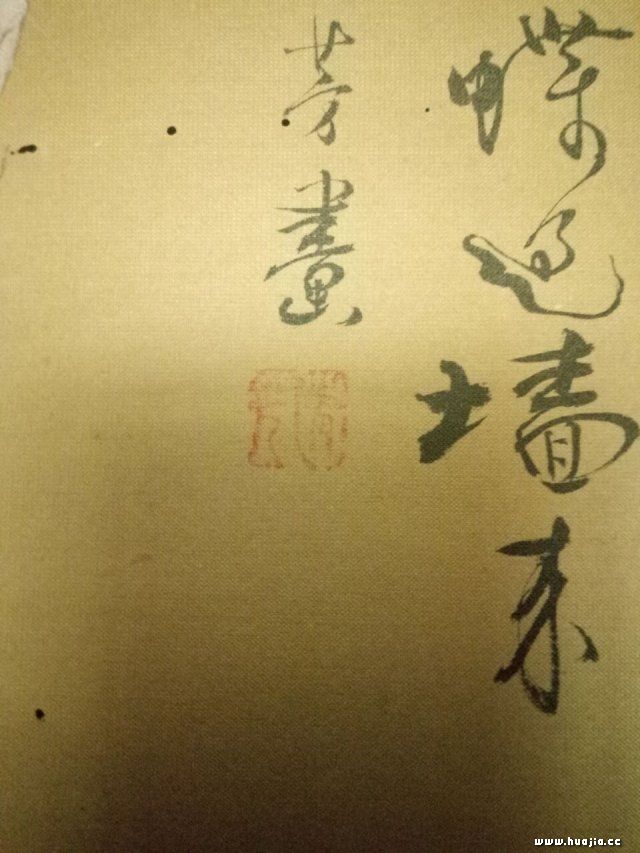 蝶過墙来
芳畫
www.huajia.cc